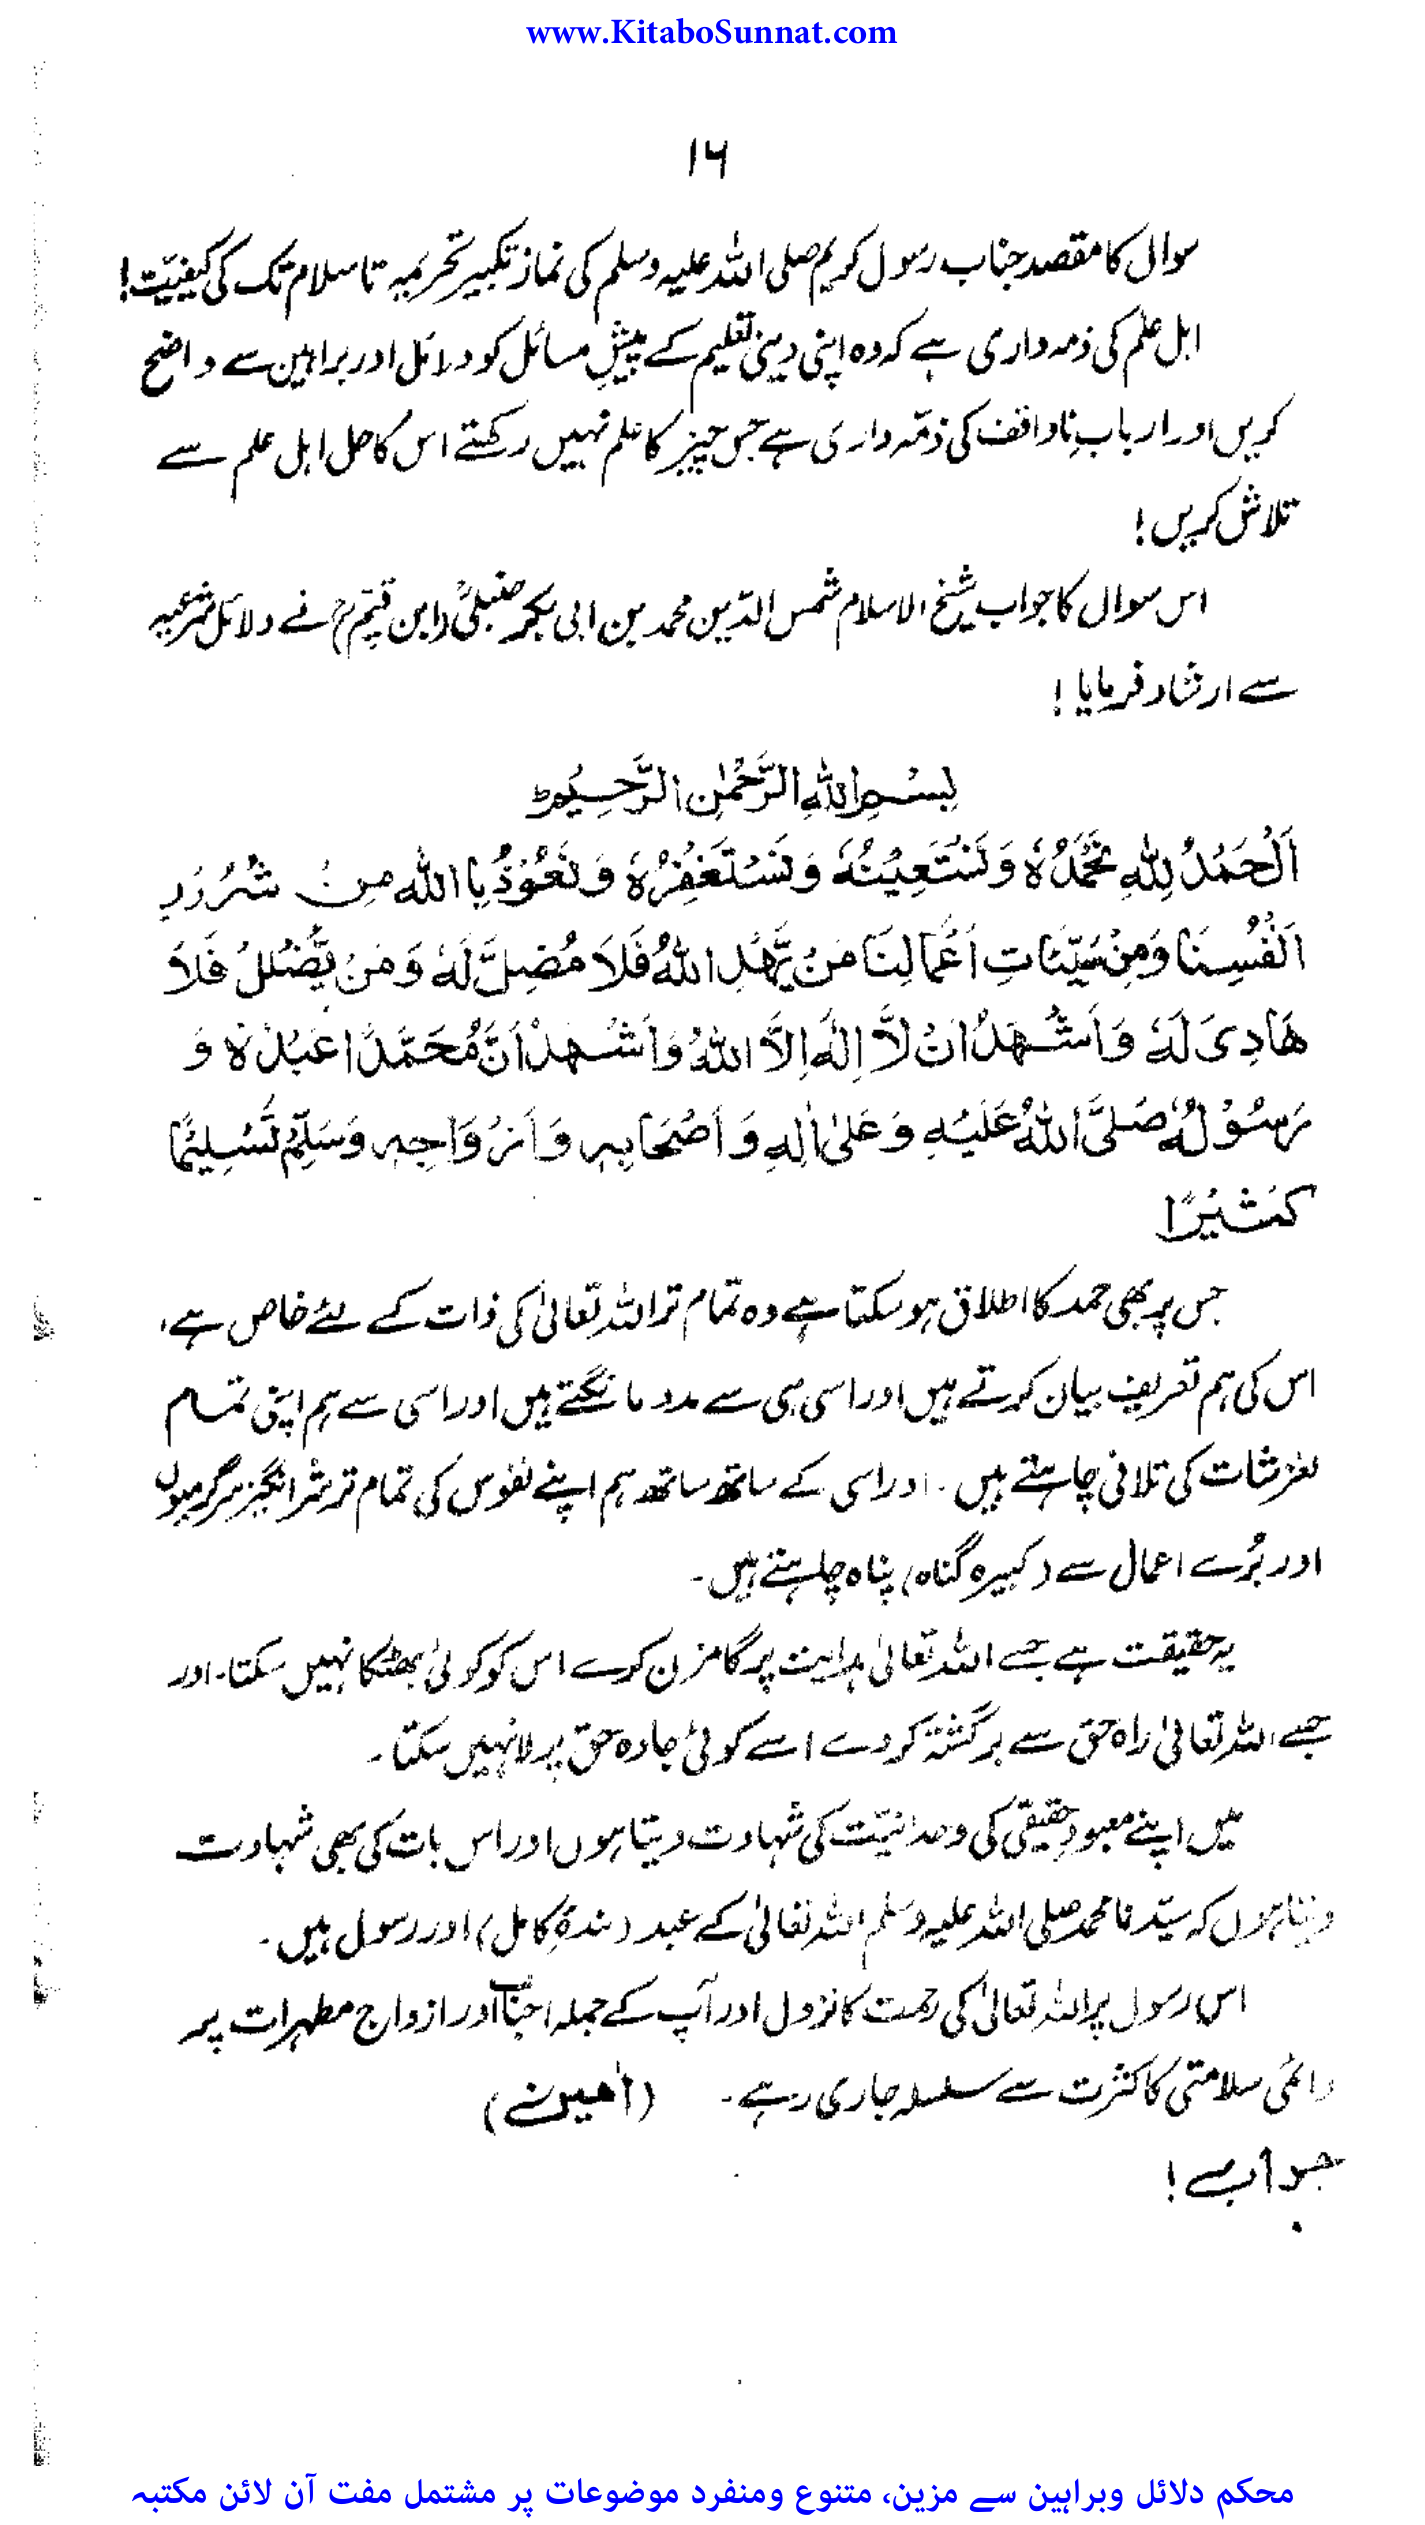 www.KitaboSunnat.com
۱۶
سوال کا مقصد جناب رسول کریم صلی اللہ علیہ وسلم کی نماز تکبیر تحریمیہ تا سلام تک کی کیفیّت!
اہل علم کی ذمہ داری ہے کہ وہ اپنی دینی تعلیم کے پیشِ مسائل کو دلائل اور براہین سے واضح
کریں اور اربابِ ناواقف کی ذمّہ داری ہے جس چیز کا علم نہیں رکھتے اس کا حل اہل علم سے
تلاش کریں!
اس سوال کا جواب شیخ الاسلام شمس الدّین محمد بن ابی بکر حنبلیؒ (ابن قیّمؒ) نے دلائل شرعیہ
سے ارشاد فرمایا!
بِسْمِ اللّٰهِ الرَّحْمٰنِ الرَّحِيْمِ ط
اَلْحَمْدُ لِلّٰهِ نَحْمَدُهٗ وَنَسْتَعِيْنُهٗ وَنَسْتَغْفِرُهٗ وَنَعُوْذُ بِا اللّٰه مِنْ شُرُوْرِ
اَنْفُسِنَا وَمِنْ سَيِّئَاتِ اَعْمَالِنَا مَنْ يَّهْدِ اللّٰهُ فَلَا مُضِلَّ لَهٗ وَمَنْ يُّضْلِلْ فَلَا
هَادِىَ لَهٗ وَاَشْهَدُ اَنْ لَّا اِلٰهَ اِلَّا اللّٰهُ وَاَشْهَدُ اَنَّ مُحَمَّدًا عَبْدُهٗ وَ
رَسُوْلُهٗ صَلَّى اللّٰهُ عَلَيْهِ وَعَلىٰ اٰلِهٖ وَاَصْحَابِهٖ وَاَزْوَاجِهٖ وَسَلِّمْ تَسْلِيْمًا
كَثِيْرًا
جس پر بھی حمد کا اطلاق ہو سکتا ہے وہ تمام تر اللہ تعالیٰ کی ذات کے لئے خاص ہے،
اس کی ہم تعریف بیان کرتے ہیں اور اسی ہی سے مدد مانگتے ہیں اور اسی سے ہم اپنی تمام
لغزشات کی تلافی چاہتے ہیں۔ اور اسی کے ساتھ ساتھ ہم اپنے نفوس کی تمام تر شر انگیز سرگرمیوں
اور بُرے اعمال سے (کبیرہ گناہ) پناہ چاہتے ہیں۔
یہ حقیقت ہے جسے اللہ تعالیٰ ہدایت پر گامزن کرے اس کو کوئی بھٹکا نہیں سکتا۔ اور
جسے اللہ تعالیٰ راہ حق سے برگشتہ کر دے اسے کوئی جادہ حق پر لا نہیں سکتا۔
میں اپنے معبودِ حقیقی کی وحدانیّت کی شہادت دیتا ہوں اور اس بات کی بھی شہادت
دیتا ہوں کہ سیّدنا محمد صلی اللہ علیہ وسلم اللہ تعالیٰ کے عبد (بندۂ کامل) اور رسول ہیں۔
اس رسول پر اللہ تعالیٰ کی رحمت کا نزول اور آپ کے جملہ احباب اور ازواج مطہرات پر
دائمی سلامتی کا کثرت سے سلسلہ جاری رہے۔ (اٰمین)
جواب!
محکم دلائل وبراہین سے مزین، متنوع ومنفرد موضوعات پر مشتمل مفت آن لائن مکتبہ